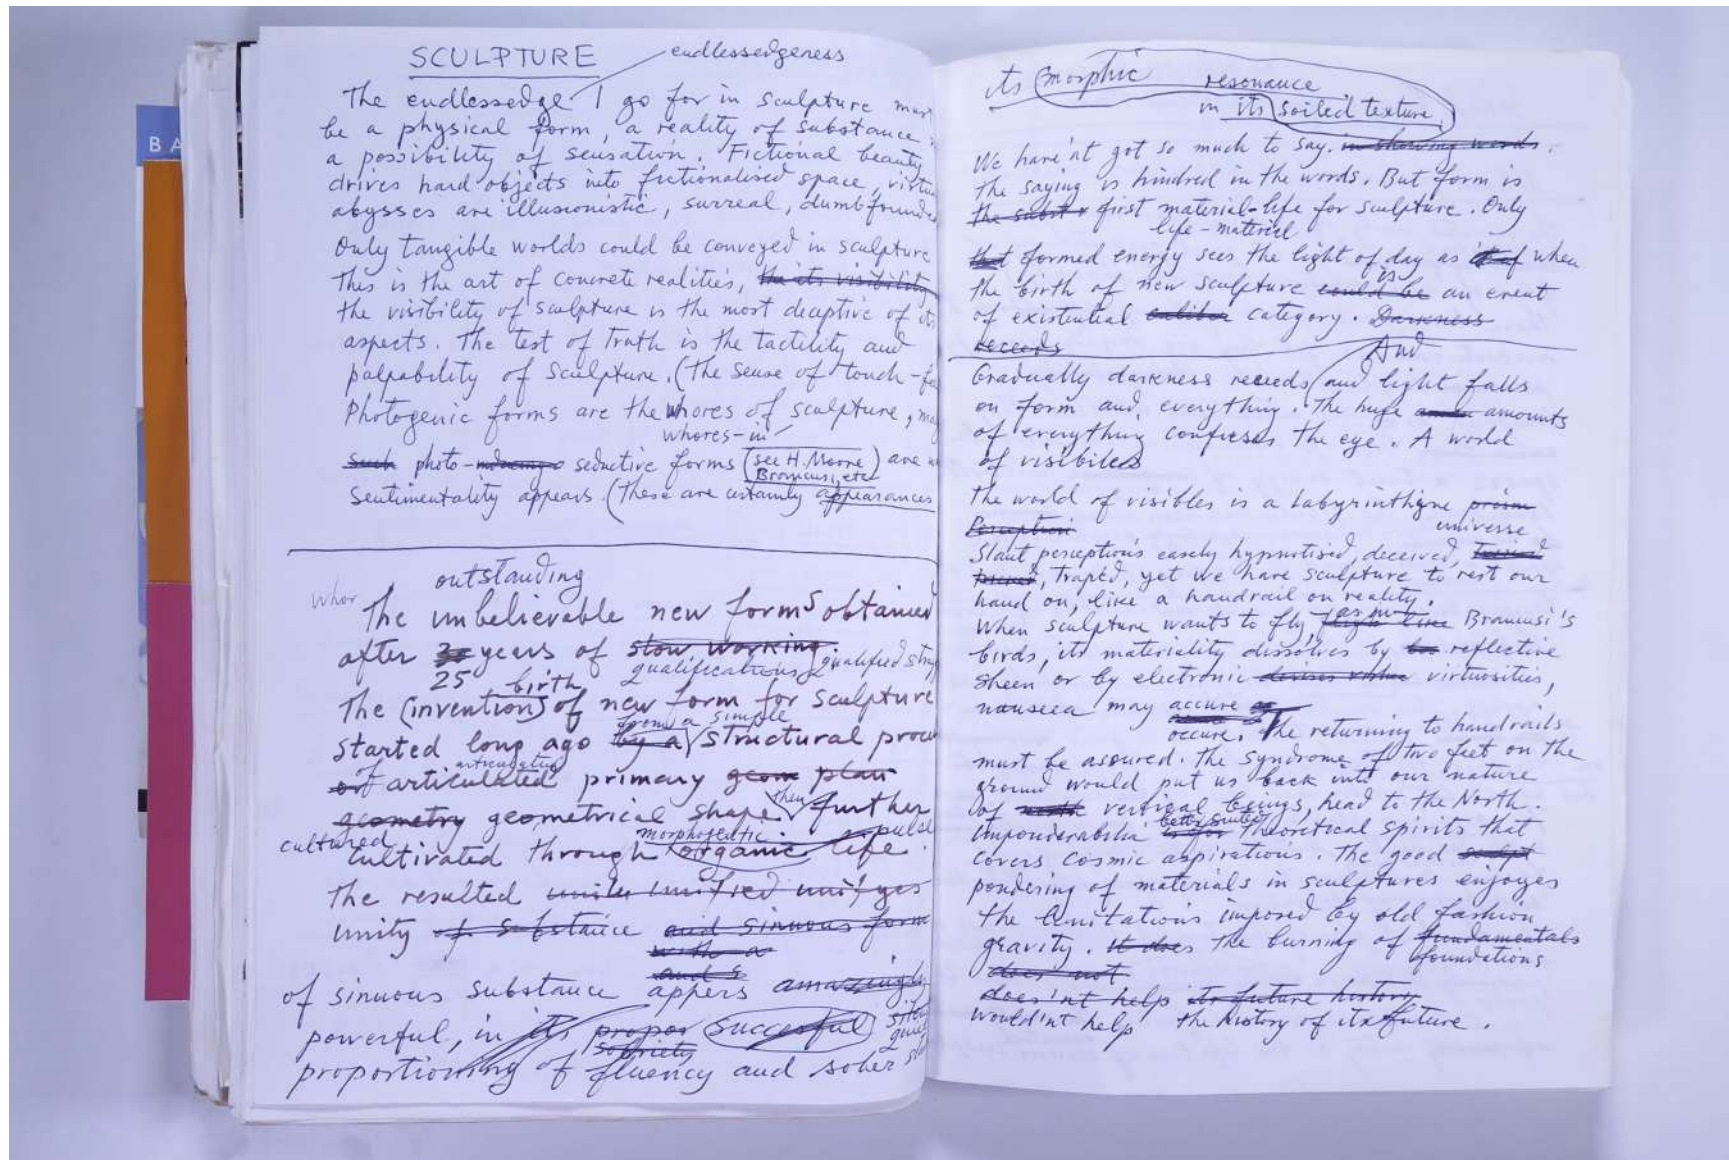 BA
SCULPTURE
endlessedgeness
The endlessedge I go for in sculpture must
be a physical form, a reality of substance
a possibility of sensation. Fictional beauty
drives hard objects into fictionalised space, virtu
abysses are illusionistic, surreal, dumbfounde
Only tangible worlds could be conveyed in sculpture
This is the art of concrete realities, the its visibility
the visibility of sculpture is the most deceptive of its
aspects. The test of Truth is the tactility and
palpability of sculpture. (The sense of touch-fe
Photogenic forms are the whores of sculpture, ma
whores-in
such photo- seductive forms (see H. Moore) are
Brancusi, etc
sentimentality appears (These are certainly appearances
outstanding
whor
The unbelievable new forms obtained
after 30 years of slow working.
25
qualifications qualified
birth
The (invention) of new form for sculpture
from a simple
started long ago by a structural proce
of
articulated
or articulated primary geom plan
then
geometry geometrical shape further
cultured
morphogentic pulse
cultivated through organic life.
The resulted unified unifyes
unity of substance and sinuous form
with a
and s
of sinuous substance appers amazingly
powerful, in its propor succesful
sobriety
proportioning of fluency and sober
its morphic resonance
in its soiled texture
We have'nt got so much to say. in showing words.
the saying is hindred in the words. But form is
the subst first material-life for sculpture. Only
life-material
that formed energy sees the light of day as if when
is
the birth of new sculpture could be an event
of existential category. Darkness
receeds
And
Gradually darkness receeds and light falls
on form and, everything. The huge amounts
of everything confuses the eye. A world
of visibiles
The world of visibles is a Labyrinthyne prism
universe
Perception
Slant perceptions easely hypnotised, deceived,
traped, yet we have sculpture to rest our
hand on, like a handrail on reality.
as in
When sculpture wants to fly, like Brancusi's
birds, its materiality dissolves by reflective
sheen or by electronic devises virtue virtuosities,
nauseea may accure
occure. The returning to handrails
must be assured. The syndrome of two feet on the
ground would put us back into our nature
of vertical beings, head to the North.
Imponderabilia theoretical spirits that
covers cosmic aspirations. The good sculpt
pondering of materials in sculptures enjoyes
the limitations imposed by old fashion
gravity. It does the burning of fundamentals
foundations
does not
does'nt help its future history
would'nt help the history of its future.